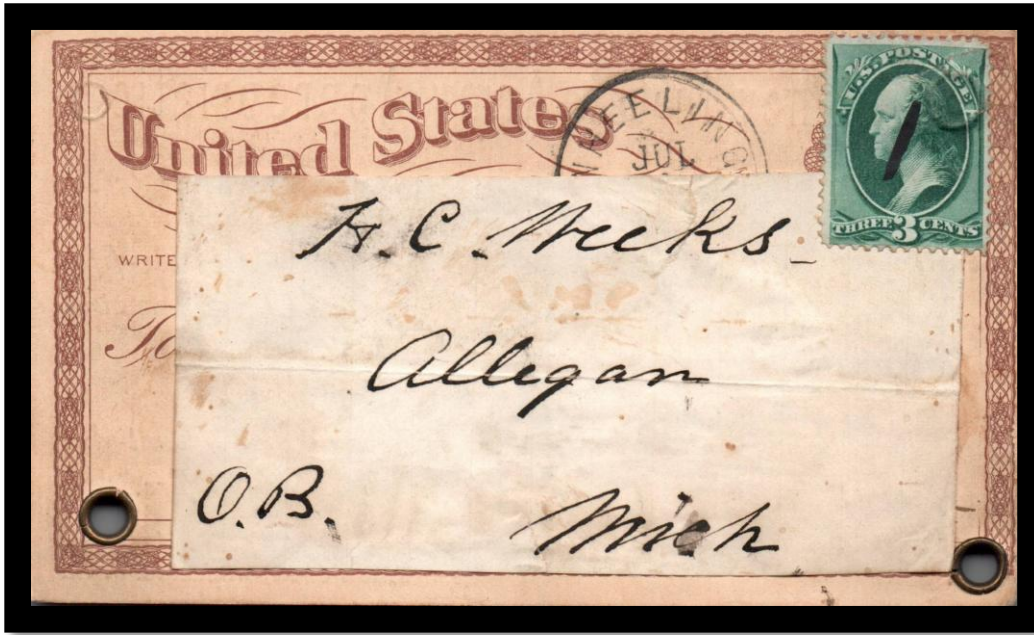 United States
JUL
U.S. POSTAGE
THREE 3 CENTS
WRITE
To
H. C. Weeks
Allegan
O. B.
Mich